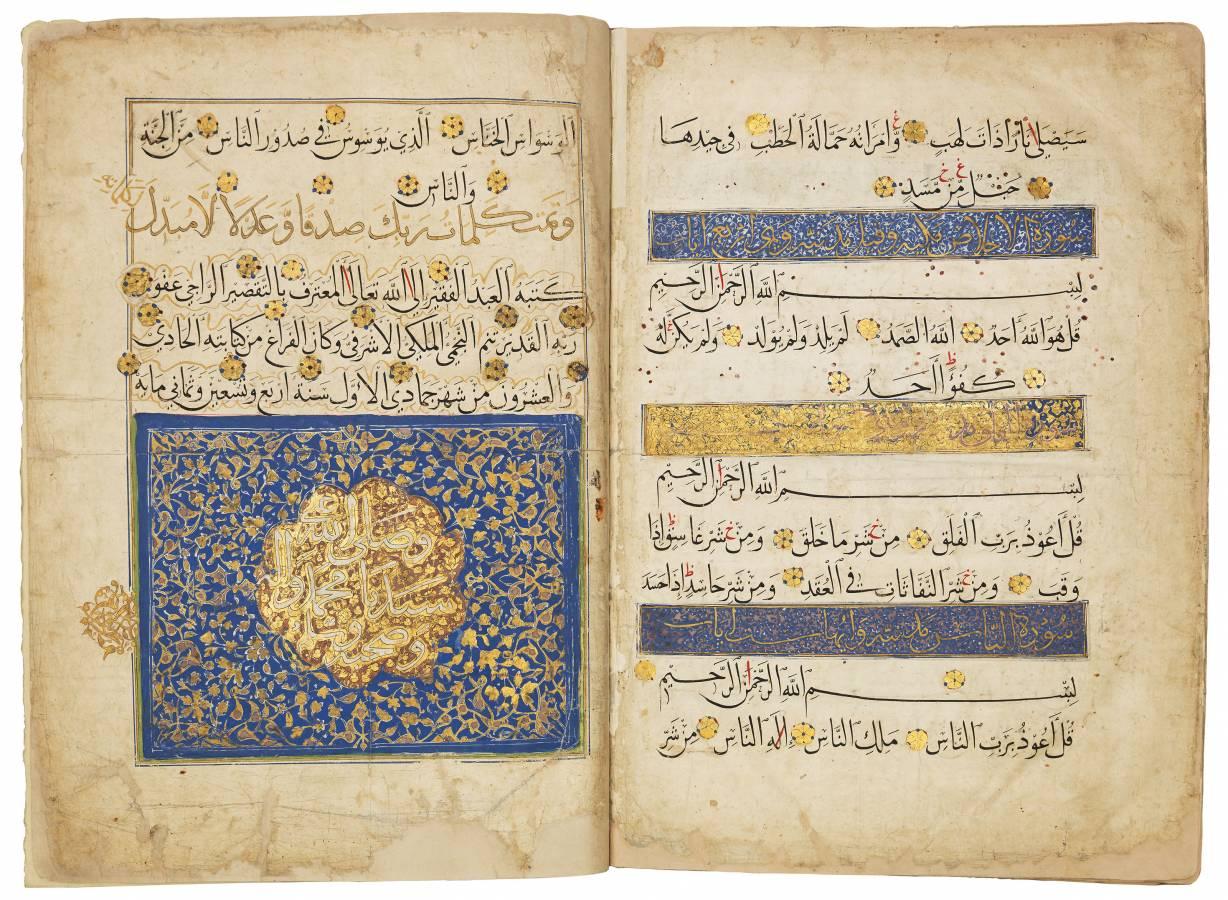 سَيَصْلَى نَارًا ذَاتَ لَهَبٍ وَّامْرَاَتُهُ حَمَّالَةُ الْحَطَبِ فِي جِيْدِهَا
حَبْلٌ مِّنْ مَّسَدٍ
سورة الاخلاص مكية وقيل مدنية وهي اربع ايات
بِسْمِ اللهِ الرَّحْمٰنِ الرَّحِيْمِ
قُلْ هُوَ اللهُ اَحَدٌ اَللهُ الصَّمَدُ لَمْ يَلِدْ وَلَمْ يُوْلَدْ وَلَمْ يَكُنْ لَّهُ
كُفُؤًا اَحَدٌ
بِسْمِ اللهِ الرَّحْمٰنِ الرَّحِيْمِ
قُلْ اَعُوْذُ بِرَبِّ الْفَلَقِ مِنْ شَرِّ مَا خَلَقَ وَمِنْ شَرِّ غَاسِقٍ اِذَا
وَقَبَ وَمِنْ شَرِّ النَّفَّاثَاتِ فِي الْعُقَدِ وَمِنْ شَرِّ حَاسِدٍ اِذَا حَسَدَ
سورة الناس مدنية ست ايات
بِسْمِ اللهِ الرَّحْمٰنِ الرَّحِيْمِ
قُلْ اَعُوْذُ بِرَبِّ النَّاسِ مَلِكِ النَّاسِ اِلٰهِ النَّاسِ مِنْ شَرِّ
الْوَسْوَاسِ الْخَنَّاسِ الَّذِي يُوَسْوِسُ فِي صُدُوْرِ النَّاسِ مِنَ الْجِنَّةِ
وَالنَّاسِ
وَتَمَّتْ كَلِمَاتُ رَبِّكَ صِدْقًا وَّعَدْلًا لَا مُبَدِّلَ لِكَلِمَاتِهِ
كتبه العبد الفقير الى الله تعالى المعترف بالتقصير الراجي عفو
ربه القدير تنم النجمي الملكي الاشرفي وكان الفراغ من كتابته الحادي
والعشرون من شهر جمادي الاول سنة اربع وتسعين وثماني مايه
وصلى الله على
سيدنا محمد و
وصحبه وسلم